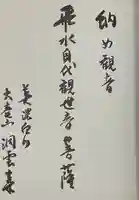 納め観音
飛水目代観世音菩薩
美濃白川
大竜山 洞雲寺